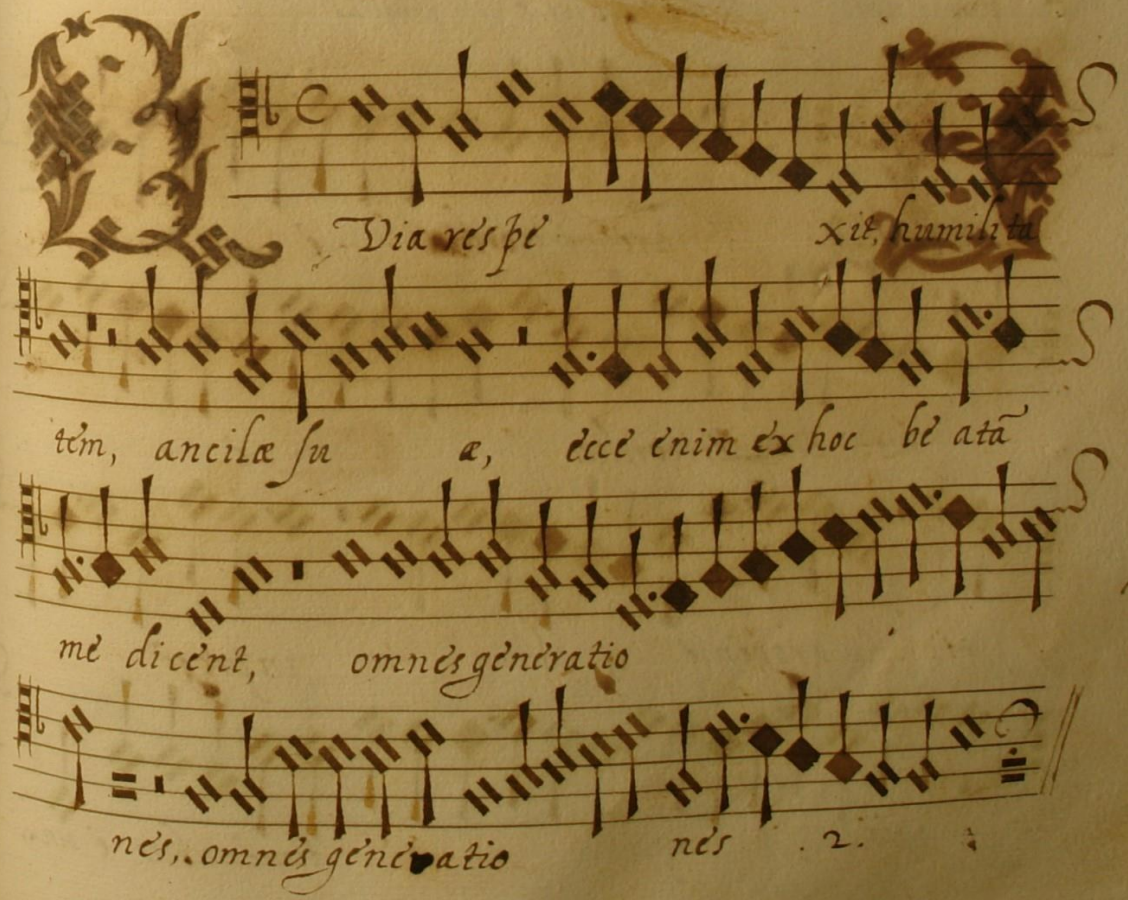 Q Via respe xit, humilita
tem, ancilæ su æ, ecce enim ex hoc be atã
me dicent, omnes generatio
nes, omnes generatio nes . 2 .